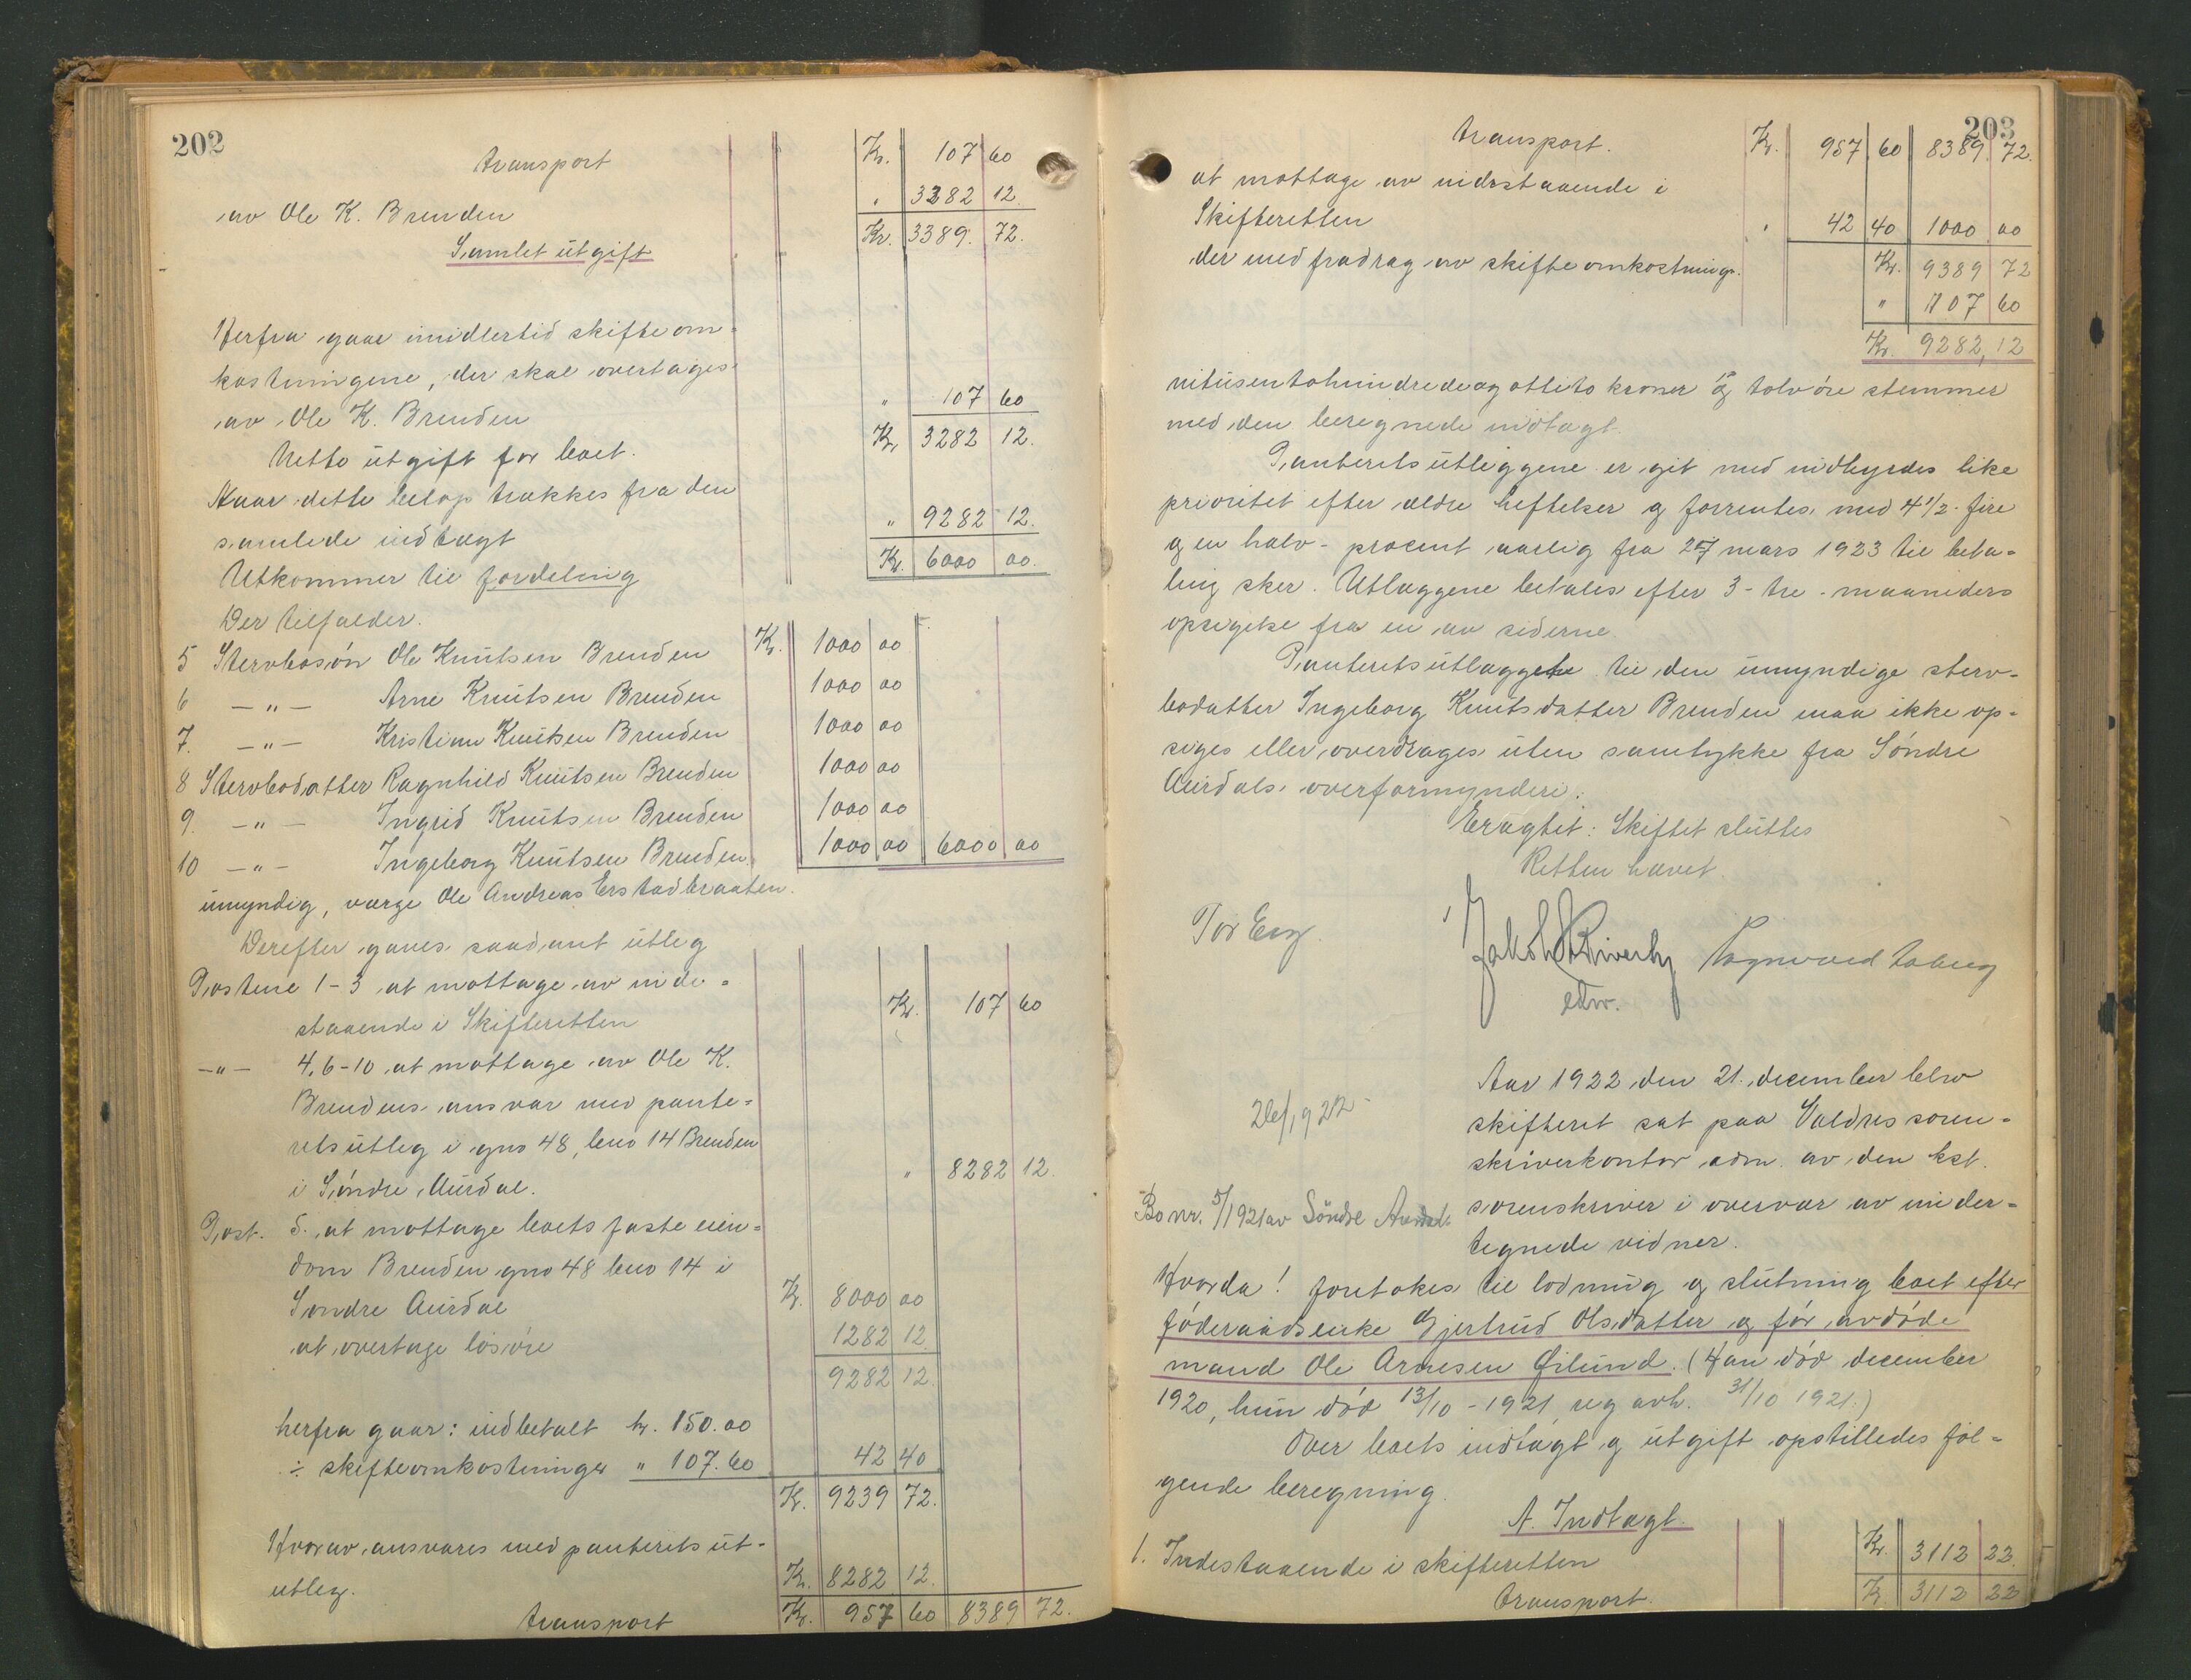 202
transport Kr. 107 60
av Ole K. Brenden " 3282 12.
Samlet utgift Kr. 3389. 72.
Herfra gaar imidlertid skifteom-
kostningene, der skal overtages
av Ole K. Brenden " 107 60
Netto utgift for boet. Kr. 3282 12.
Naar dette beløp trækkes fra den
samlede indtægt " 9282 12.
Utkommer til fordeling Kr. 6000 00.
Der tilfalder.
5 Stervbosøn Ole Knutsen Brenden Kr. 1000 00
6 — " — Arne Knutsen Brenden 1000 00
7. — " — Kristian Knutsen Brenden 1000 00
8 Stervbodatter Ragnhild Knutsen Brenden 1000 00
9. — " — Ingrid Knutsen Brenden 1000 00
10 — " — Ingeborg Knutsen Brenden 1000 00 6000 00
umyndig, værge Ole Andreas Erstadbraaten.
Derefter gaves saadant utlæg
Postene 1-3 at mottage av inde-
staaende i Skifteretten Kr. 107 60
— " — 4, 6-10 at mottage av Ole K.
Brendens ansvar med pante-
retsutlæg i gno 48, bno 14 Brenden
i Søndre Aurdal. " 8282 12.
Post. 5. at mottage boets faste eien-
dom Brenden gno 48 bno 14 i
Søndre Aurdal Kr. 8000 00
at overtage løsøre 1282 12
9282 12.
herfra gaar: indbetalt kr. 150.00
÷ skifteomkostninger " 107.60 42 40
Kr. 9239 72.
Hvorav ansvares med panterets ut-
utlæg. Kr. 8282 12.
transport Kr. 957 60 8389 72.
203
transport. Kr. 957 60 8389 72.
at mottage av indestaaende i
Skifteretten " 42 40 1000 00
der med fradrag av skifteomkostninger. Kr. 9389 72
" 107 60
Kr. 9282,12
nitusentohundredeogottito kroner og tolv øre stemmer
med den beregnede indtægt.
Panteretsutlæggene er git med indbyrdes like
prioritet efter ældre heftelser og forrentes med 4 1/2 - fire
og en halv - procent aarlig fra 27 mars 1923 til beta-
ling sker. Utlæggene betales efter 3 - tre - maaneders
opsigelse fra en av siderne.
Panteretsutlægget til den umyndige sterv-
bodatter Ingeborg Knutsdatter Brenden maa ikke op-
siges eller overdrages uten samtykke fra Søndre
Aurdals overformynderi.
Eragtet: Skiftet sluttes
Retten hævet.
Tor Eng.
edsv.
Aar 1922 den 21. december blev
skifteret sat paa Valdres soren-
skriverkontor adm. av den kst.
sorenskriver i overvær av under-
tegnede vidner.
Bo nr. 5/1921 av Søndre Aurdal
Hvorda! foretokes til lodning og slutning boet efter
føderaadsenke Gjertrud Olsdatter og før avdøde
mand Ole Arnesen Øilund. (Han død december
1920, hun død 13/10 - 1921, reg avh. 31/10 1921.)
Over boets indtægt og utgift opstilledes føl-
gende beregning.
A. Indtægt.
1. Indestaaende i skifteretten Kr. 3112 22.
transport. Kr. 3112 22